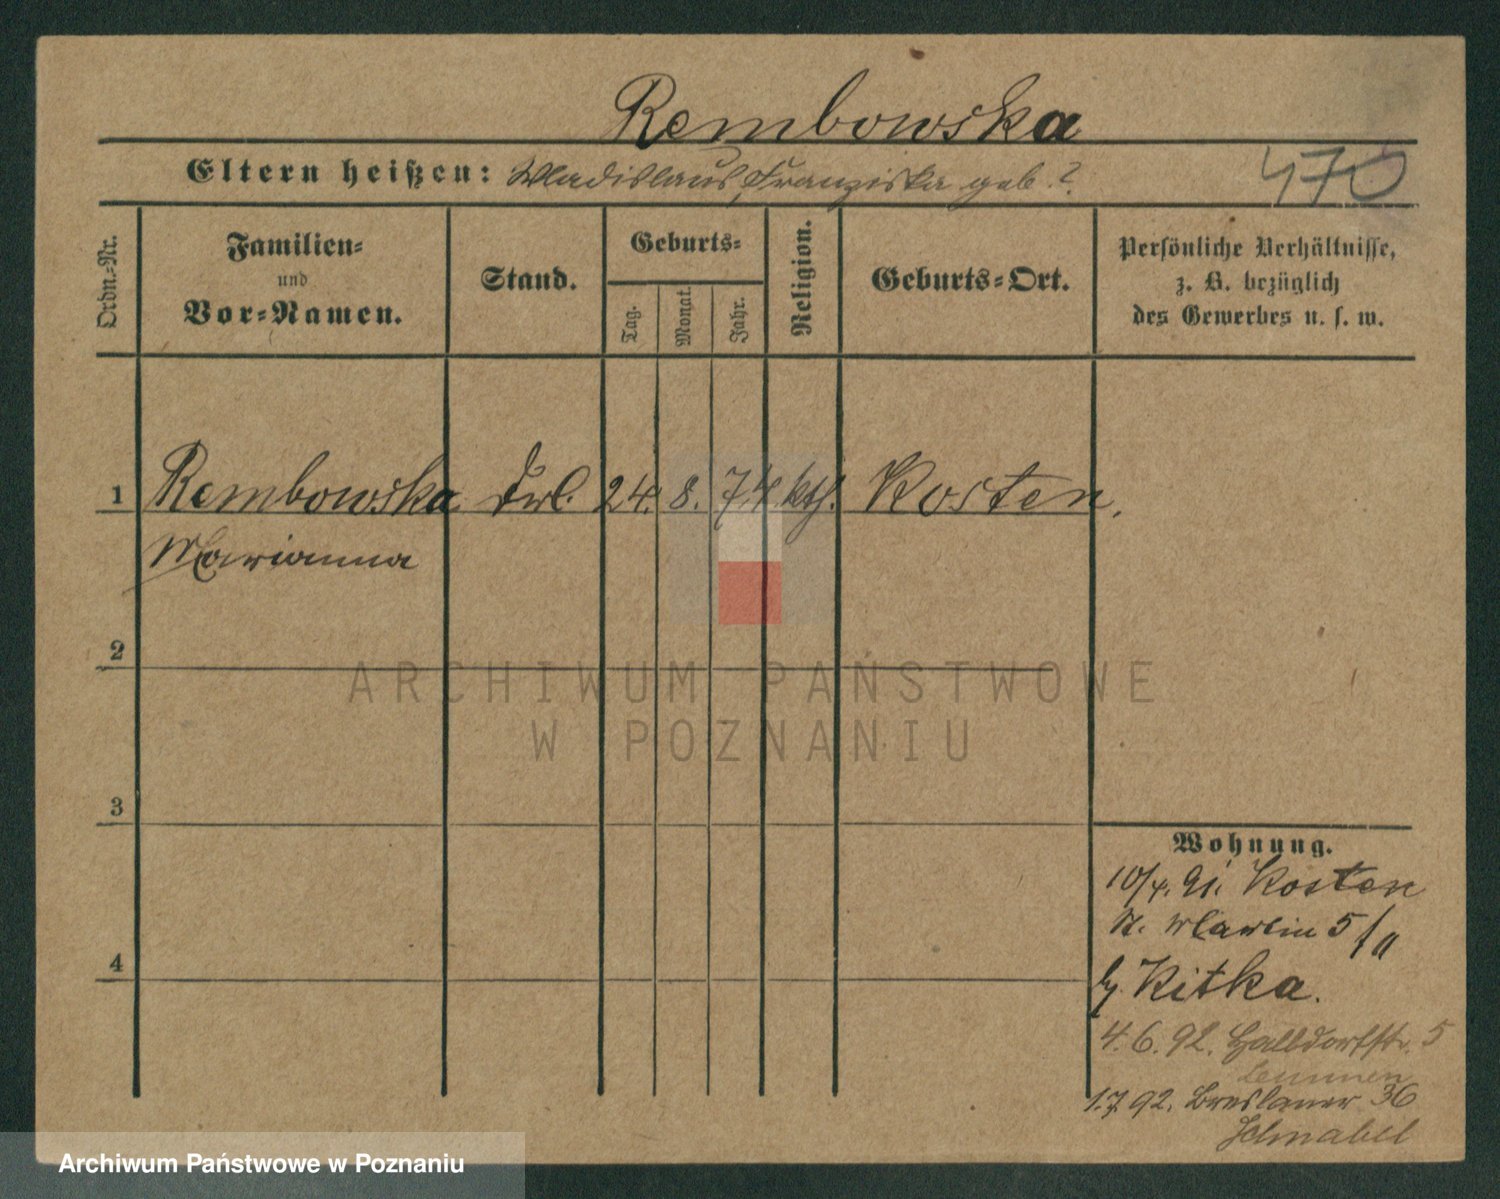 Rembowska
Eltern heißen: Wladislaus, Franziska geb. ?
470
Ordn.-Nr.
Familien-
und
Vor-Namen.
Stand.
Geburts-
Tag.
Monat.
Jahr.
Religion.
Geburts-Ort.
Persönliche Verhältnisse,
z. B. bezüglich
des Gewerbes u. s. w.
1 Rembowska Frl. 24. 8. 74. kth. Kosten.
Marianna
2
3
4
Wohnung.
10/4. 91. Kosten
St. Martin 5/II
by Kitka.
4. 6. 92. Halbdorfstr. 5
1.7.92. Breslauer 36
Schnabel
ARCHIWUM PAŃSTWOWE
W POZNANIU
Archiwum Państwowe w Poznaniu